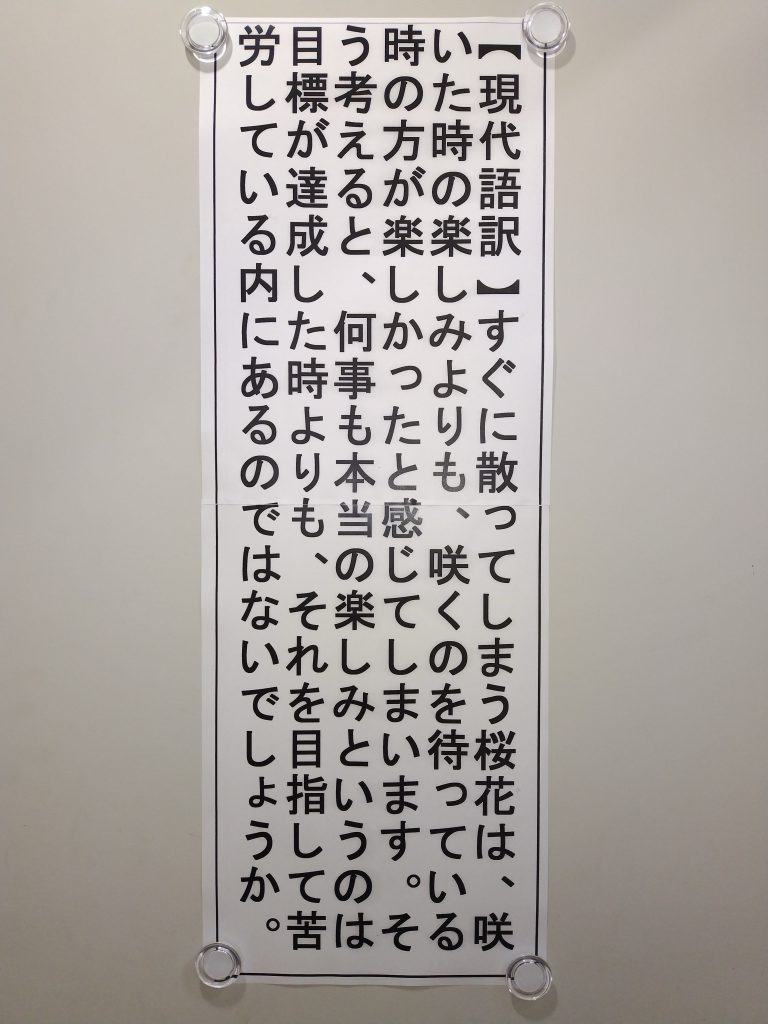 【現代語訳】すぐに散ってしまう桜花は、咲
いた時の楽しみよりも、咲くのを待っている
時の方が楽しかったと感じてしまいます。そ
う考えると、何事も本当の楽しみというのは
目標が達成した時よりも、それを目指して苦
労している内にあるのではないでしょうか。